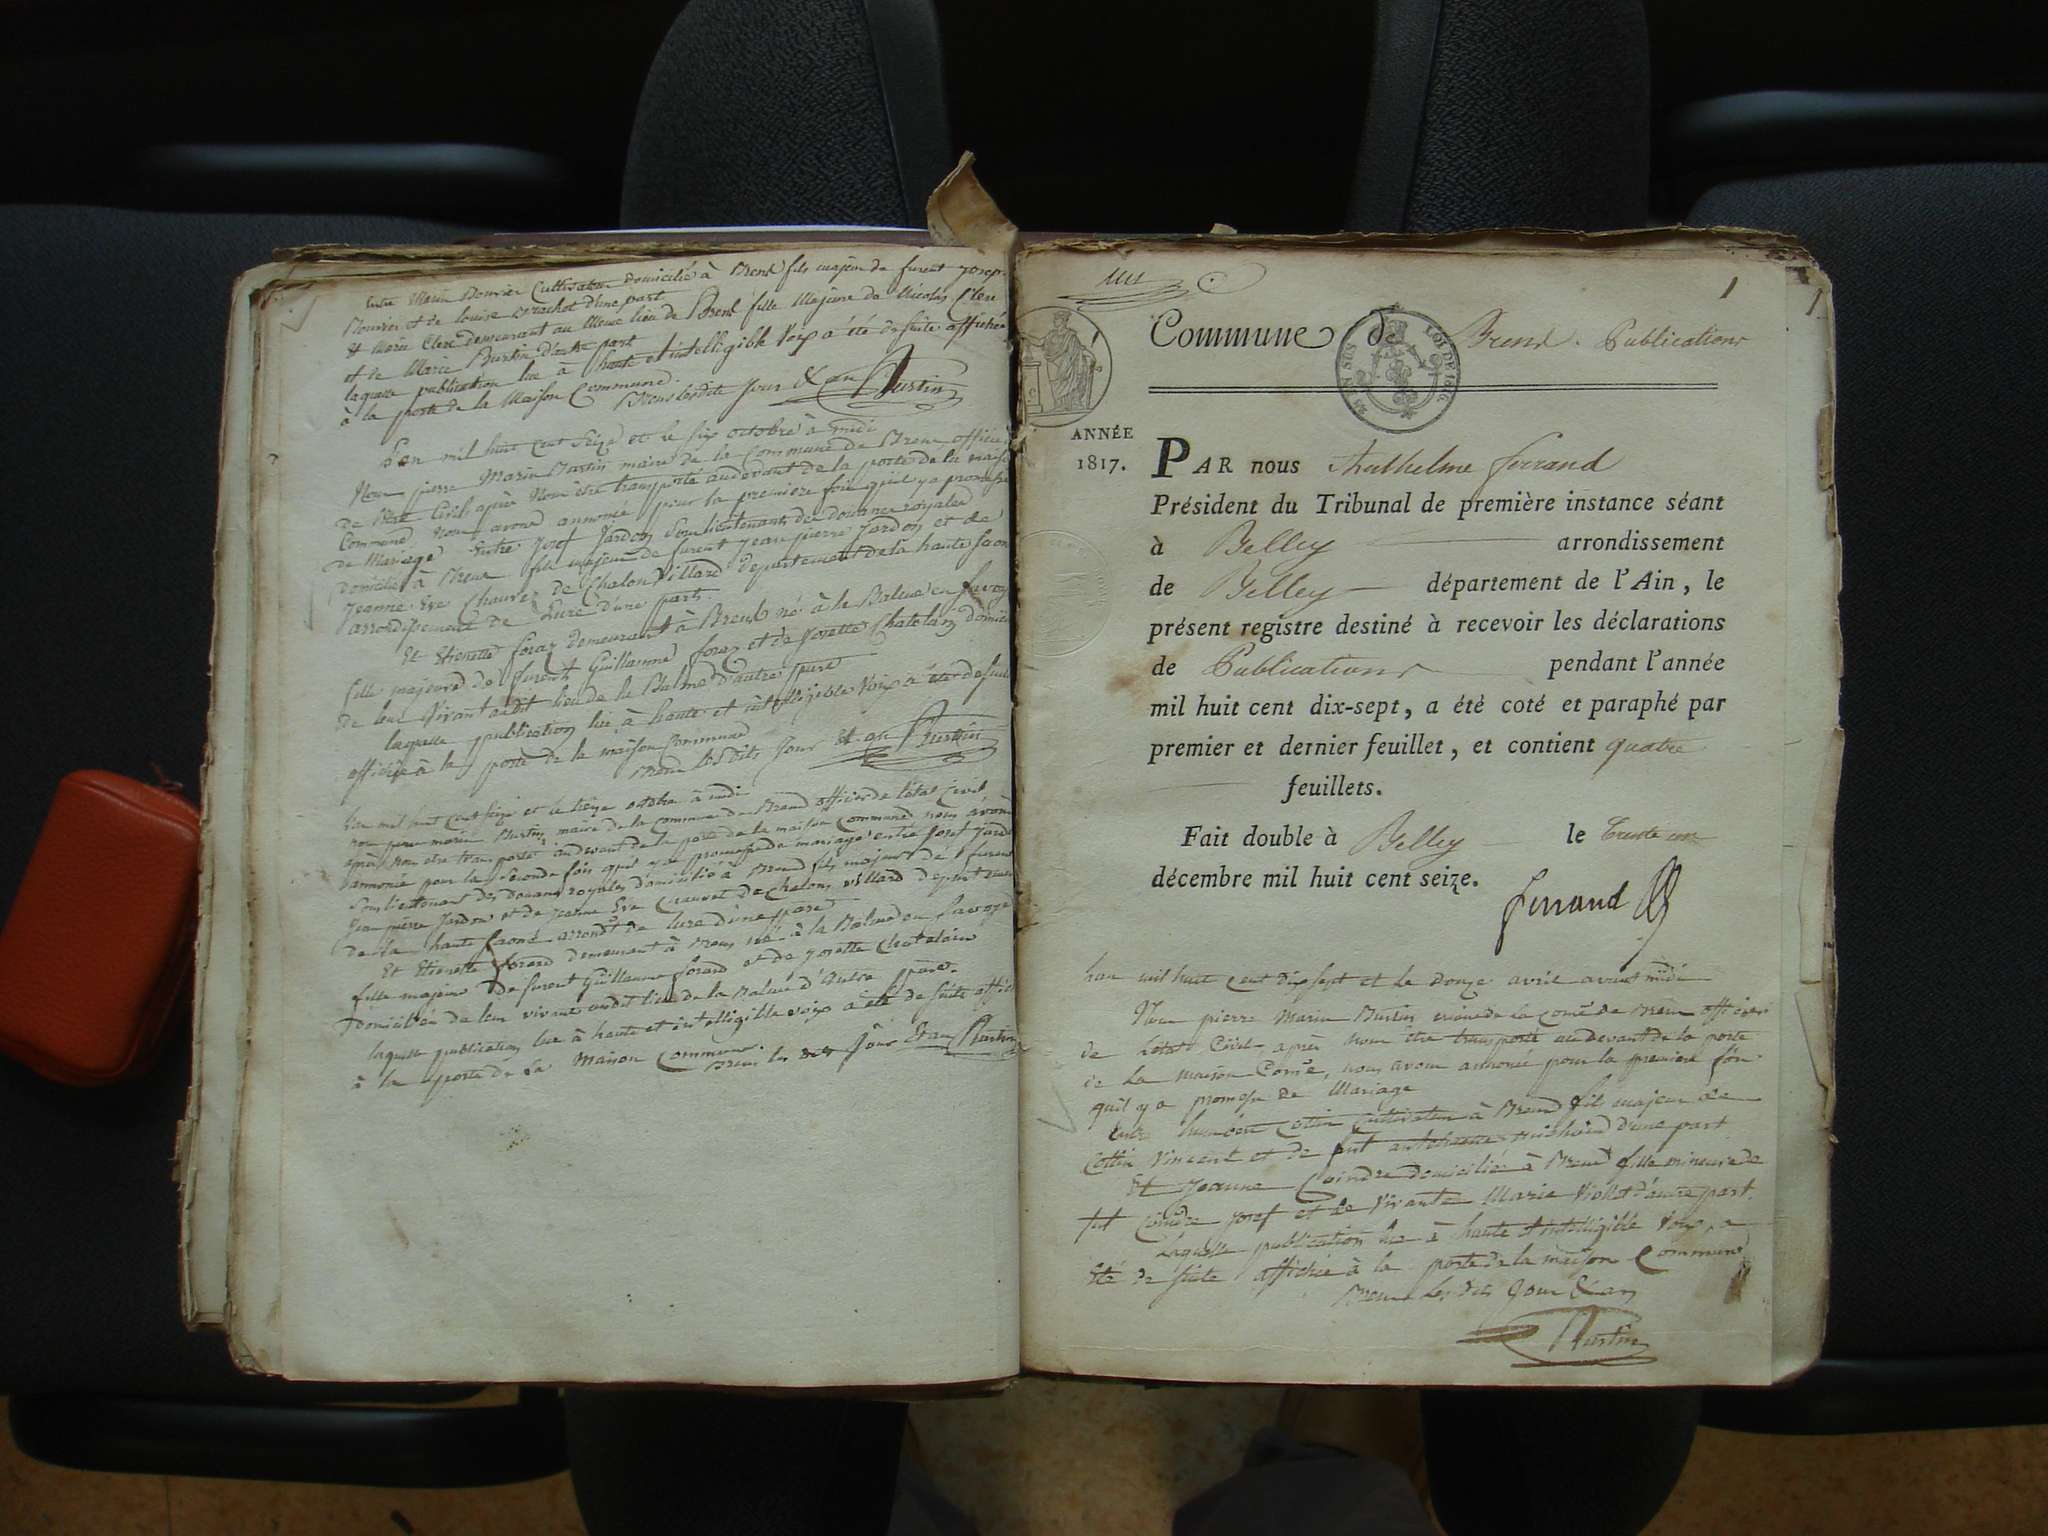 Entre Marin Bouvier Cultivateur domicilié à Brens fils majeur de furent Josep
Bouvier et de Louise Brachet d'une part
Et Marie Clerc demeurant au Meme lieu de Brens fille Majeure de Nicolas Clerc
et de Marie Burtin d'autre part
laquelle publication lue à haute et intelligible Voix a été de suite affichée
à la porte de la Maison Commune.
Brens lesdits Jour & an Burtin
L'an mil huit Cent Seize et le six octobre à midi
Nous pierre Marin Burtin maire de la Commune de Brens officier
de l'état Civil après Nous être transporté audevant de la porte de la maison
Commune Nous avons annoncé pour la premiere fois qu'il y a promesse
de Mariage Entre Josef Jardon Souslieutenant des douanes royales
domicilié à Brens fils majeur de furent Jean pierre Jardon et de
Jeanne Eve Chauvez de Chalonvillard departement de la haute saone
arrondissement de Lure d'une part
Et Etienette foraz demeurant à Brens né à la Balme en Savoye
fille majeure de furent Guillaume foraz et de Josette Chatelain domicil
de leur Vivant audit lieu de la Balme d'autre part
laquelle publication lue à haute et intelligible Voix a été de suite
affichée à la porte de la maison Commune
Brens Lesdits Jour Et an Burtin
L'an mil huit Cent seize et le treize octobre à midi
nous pierre marin Burtin maire de la commune de Brens officier de l'état Civil
après nous etre transporté audevant de la porte de la maison Commune nous avons
annoncé pour la seconde fois qu'il y a promesse de mariage entre Josef Jardon
Souslieutenant des douanes royales domicilié à Brens fils majeur de furent
Jean pierre Jardon et de Jeanne Eve Chauvet de Chalons villard departement
de la haute saone arrondt de lure d'une part
Et Etienette forard demeurant à Brens né à la Balme en Savoye
fille majeur de furent Guillaume forard et de Josette Chatelain
domicilié de leur vivant audit lieu de la Balme d'Autre part.
laquelle publication lue à haute et intelligible voix a été de suite affichée
à la porte de La Maison Commune.
Brens les dits Jour Et an Burtin
1
1
Commune de Brens. Publications
LOI DE 1816.
ANNÉE
1817.
PAR nous Anthelme ferrand
Président du Tribunal de première instance séant
à Belley arrondissement
de Belley département de l'Ain, le
présent registre destiné à recevoir les déclarations
de Publications pendant l'année
mil huit cent dix-sept, a été coté et paraphé par
premier et dernier feuillet, et contient quatre
feuillets.
Fait double à Belley le trente un
décembre mil huit cent seize.
ferrand
Lan mil huit Cent dix sept et Le douze avril avant midi
Nous pierre Marin Burtin maire de la Come de Brens officier
de L'état Civil après nous être transporté audevant de la porte
de La maison Come, nous avons annoncé pour la premiere fois
quil y a promesse de Mariage
Entre humbert Cottin Cultivateur à Brens fil majeur de
Cottin Vincent et de fut anthelmette michaud d'une part
Et Jeanne Coindre domiciliée à Brens fille mineure de
fut Coindre Josef et de Vivante Marie Viollet d'autre part.
Laquelle publication lue à haute et intelligible Voix, a
Eté de suite affichée à la porte de la maison Commune
Brens Les dits Jour & an
Burtin